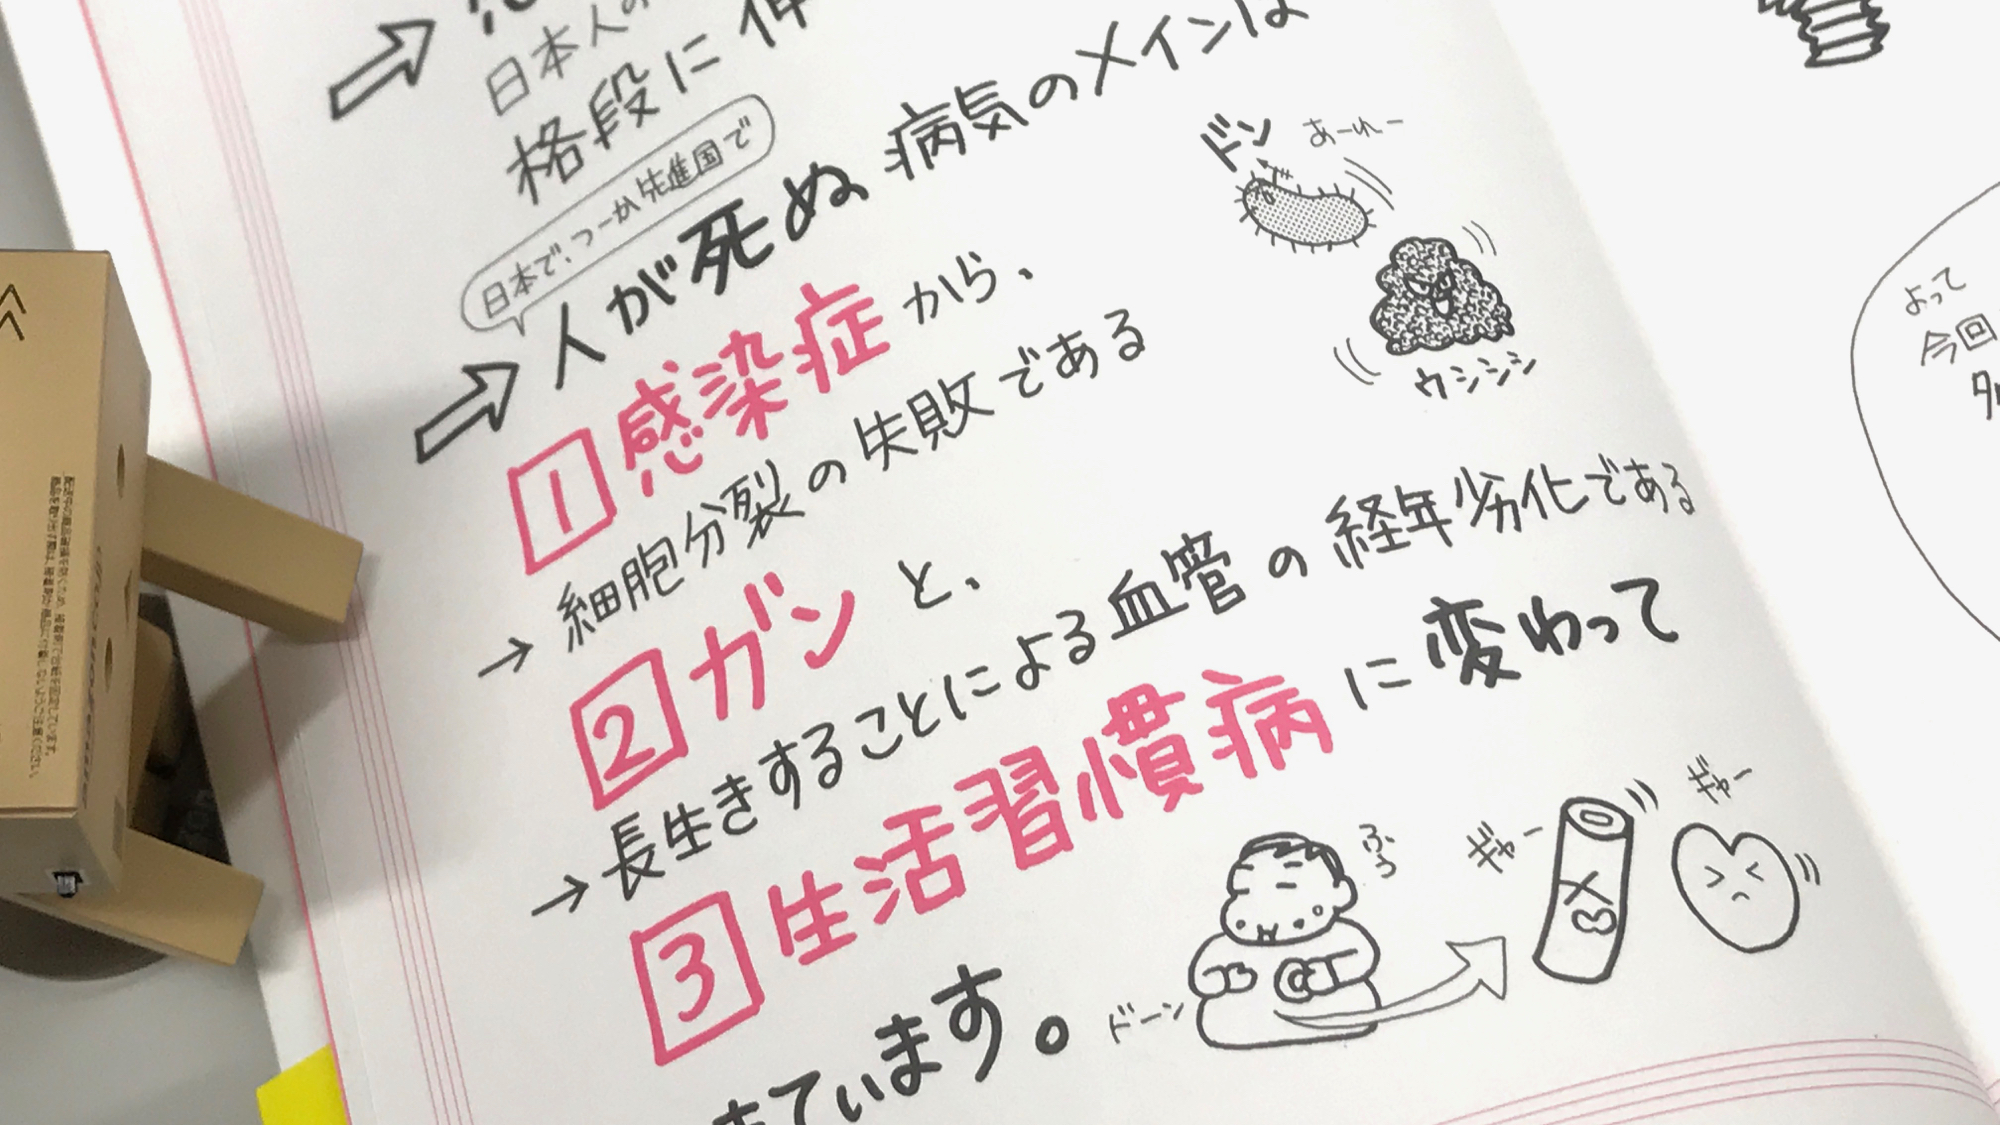 日本人の
格段に伸
日本で、つーか先進国で
人が死ぬ病気のメインは
1 感染症から、
→細胞分裂の失敗である
2 ガンと、
→長生きすることによる血管の経年劣化である
3 生活習慣病に変わって
きています。
ドン
あーれー
ウシシシ
ふぅ
ドーン
ギャー
ギャー
よって
今回